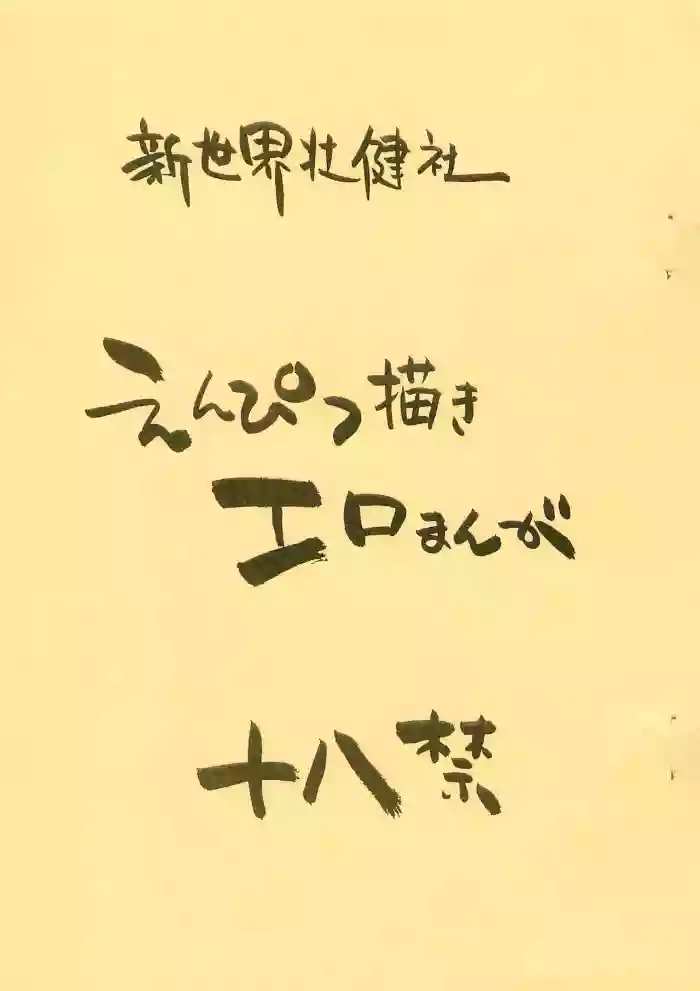 新世界壮健社
えんぴつ描き
エロまんが
十八禁